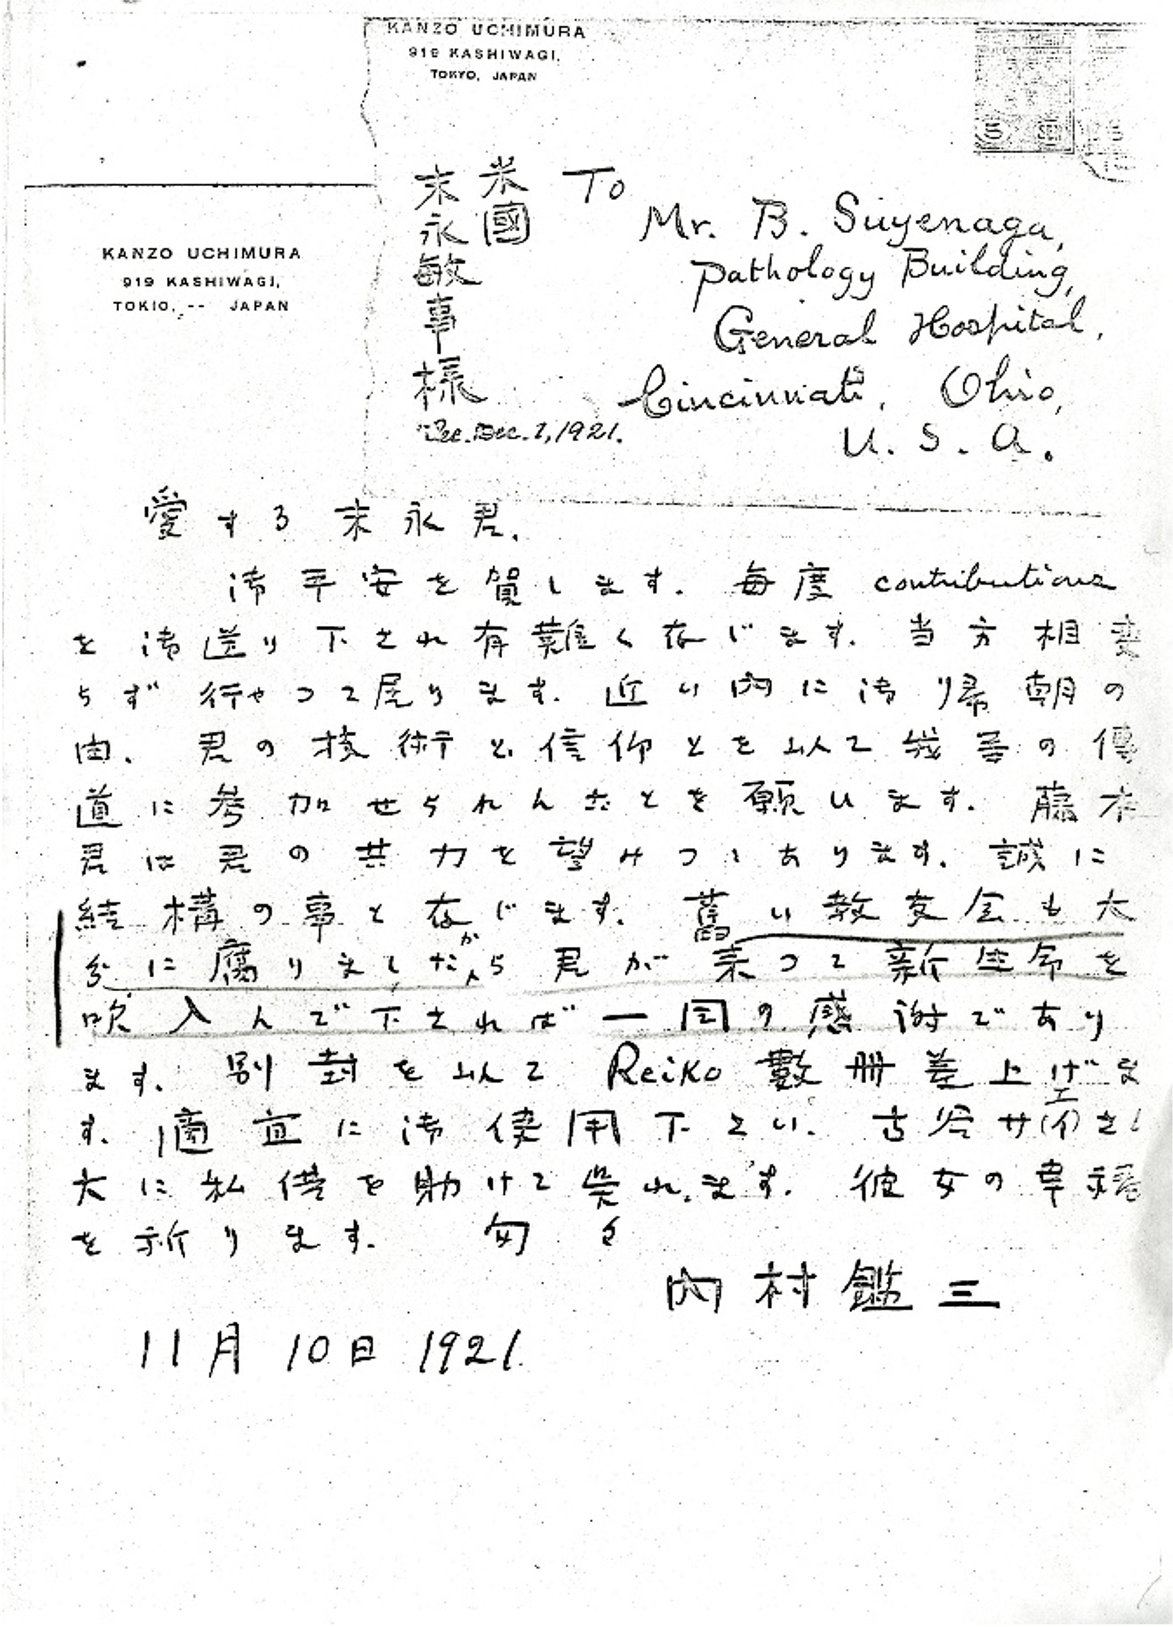 KANZO UCHIMURA
919 KASHIWAGI,
TOKYO, JAPAN
KANZO UCHIMURA
919 KASHIWAGI,
TOKIO, -- JAPAN
米國
末永敏事様
Rec. Dec. 7, 1921.
To
Mr. B. Suyenaga,
Pathology Building,
General Hospital,
Cincinnati, Ohio,
U. S. A.
愛する末永君.
御平安を賀します. 毎度 contributions
を御送り下され有難く存じます. 当方相変
らず行やつて居ります. 近い内に御帰朝の
由. 君の技術と信仰とを以て我等の傳
道に参加せられんことを願います. 藤本
君は君の共力を望みつゝあります. 誠に
結構の事と存じます. 舊い教友会も大
分に腐りましたから君が来つて新生命を
吹入んで下されば一同の感謝であり
ます. 別封を以て Reiko 數冊差上げま
す. 適宜に御使用下さい. 古谷サ
大に私供を助けて呉れます. 彼女の幸福
を祈ります. 匆々
内村鑑三
11月10日 1921.